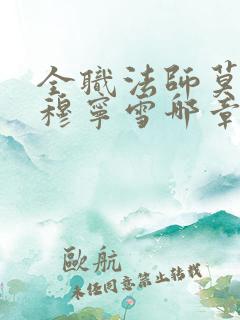 全職法師莫
穆寧雪哪章
歐航
未任同意禁止轉載